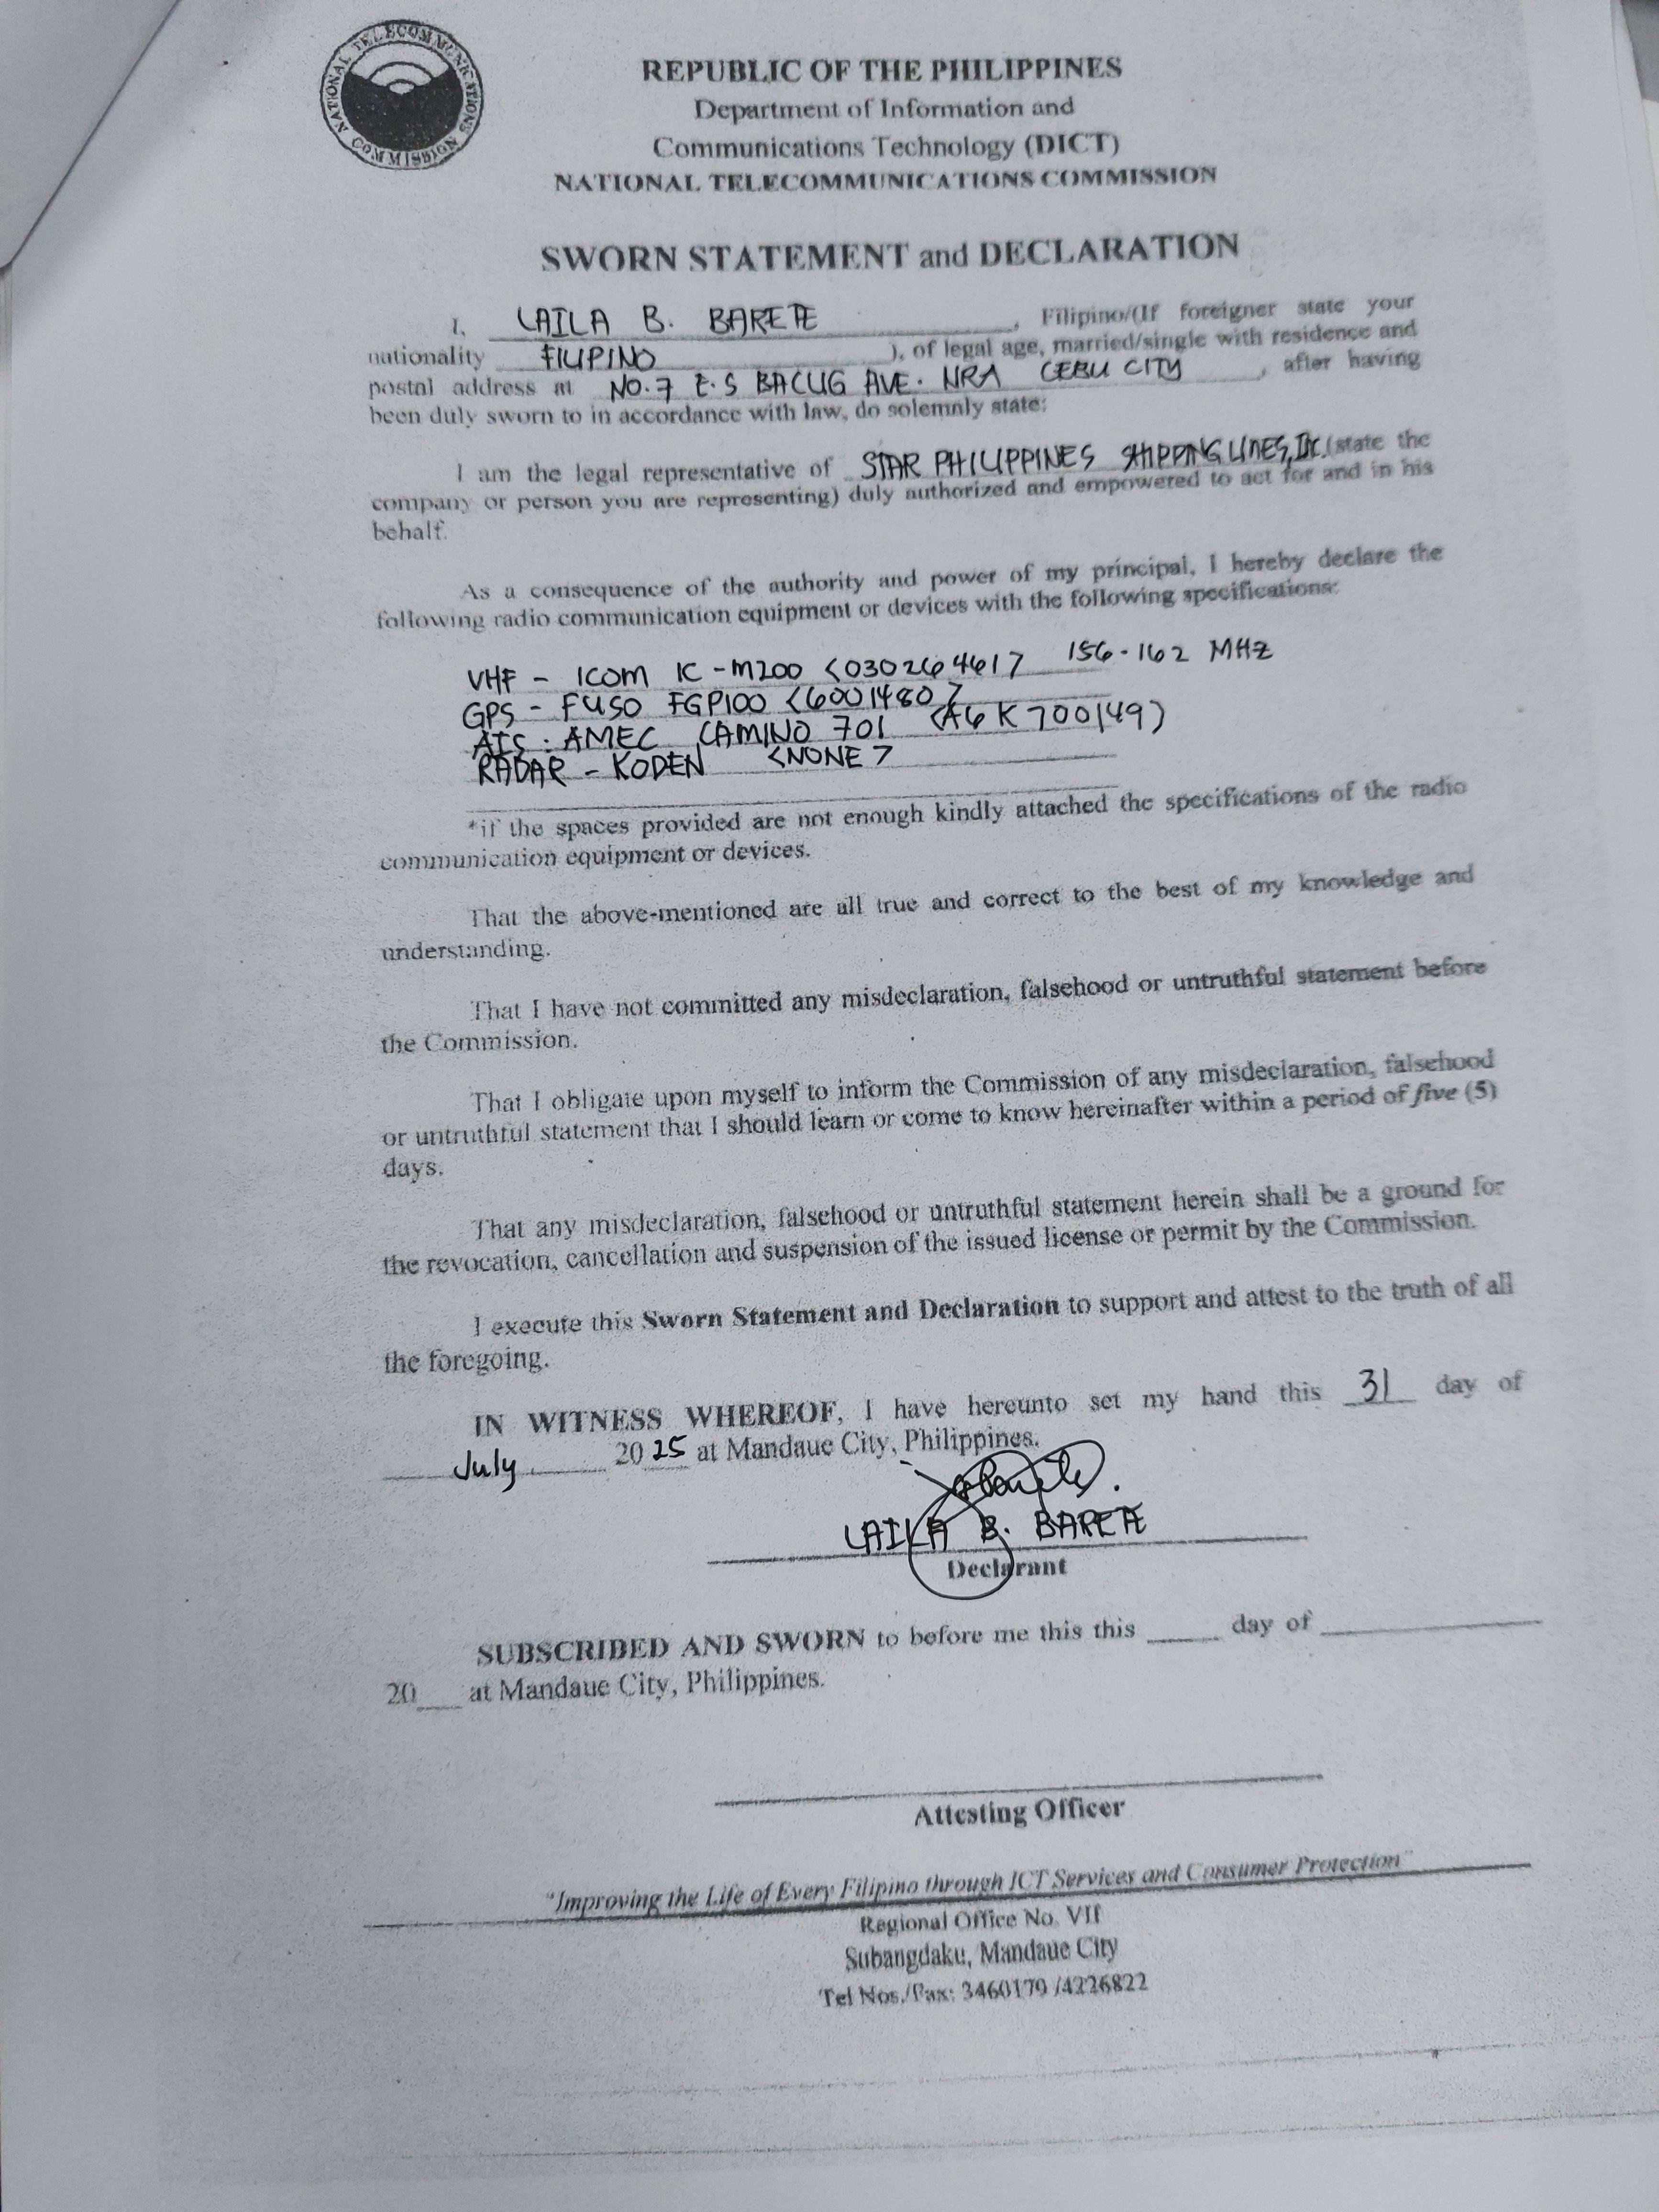 NATIONAL TELECOMMUNICATIONS COMMISSION
REPUBLIC OF THE PHILIPPINES
Department of Information and
Communications Technology (DICT)
NATIONAL TELECOMMUNICATIONS COMMISSION
SWORN STATEMENT and DECLARATION
I, LAILA B. BARETE, Filipino/(If foreigner state your
nationality FILIPINO), of legal age, married/single with residence and
postal address at NO. 7 E.S BACUG AVE. NRA CEBU CITY, after having
been duly sworn to in accordance with law, do solemnly state:
I am the legal representative of STAR PHILIPPINES SHIPPING LINES, INC. (state the
company or person you are representing) duly authorized and empowered to act for and in his
behalf.
As a consequence of the authority and power of my principal, I hereby declare the
following radio communication equipment or devices with the following specifications:
VHF - ICOM IC-M200 <03026461> 156-162 MHZ
GPS - FUSO FGP100 <6001480>
AIS : AMEC CAMINO 701 (A6K700149)
RADAR - KODEN <NONE>
*if the spaces provided are not enough kindly attached the specifications of the radio
communication equipment or devices.
That the above-mentioned are all true and correct to the best of my knowledge and
understanding.
That I have not committed any misdeclaration, falsehood or untruthful statement before
the Commission.
That I obligate upon myself to inform the Commission of any misdeclaration, falsehood
or untruthful statement that I should learn or come to know hereinafter within a period of five (5)
days.
That any misdeclaration, falsehood or untruthful statement herein shall be a ground for
the revocation, cancellation and suspension of the issued license or permit by the Commission.
I execute this Sworn Statement and Declaration to support and attest to the truth of all
the foregoing.
IN WITNESS WHEREOF, I have hereunto set my hand this 31 day of
July 2025 at Mandaue City, Philippines.
LAILA B. BARETE
Declarant
SUBSCRIBED AND SWORN to before me this this ____ day of ____
20__ at Mandaue City, Philippines.
Attesting Officer
"Improving the Life of Every Filipino through ICT Services and Consumer Protection"
Regional Office No. VII
Subangdaku, Mandaue City
Tel Nos./Fax: 3460179 /4226822